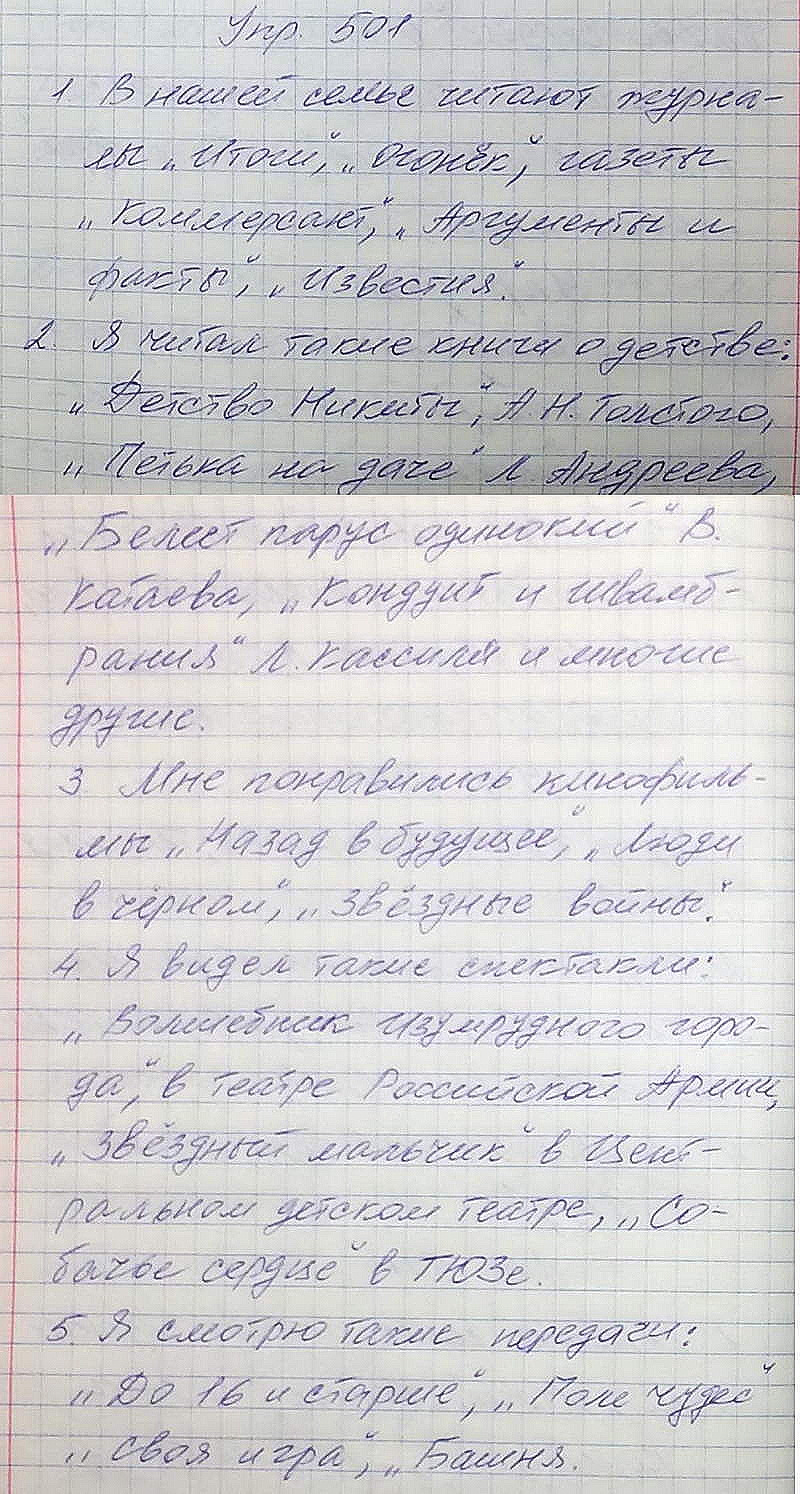 Упр. 501
1 В нашей семье читают журна-
лы „Итоги“, „Огонёк“, газеты
„Коммерсант“, „Аргументы и
факты“, „Известия“.
2. Я читал такие книги о детстве:
„Детство Никиты“, А. Н. Толстого,
„Петька на даче“ Л Андреева,
„Белеет парус одинокий“ В.
Катаева, „Кондуит и Швамб-
рания“ Л. Кассиля и многие
другие.
3 Мне понравились кинофиль-
мы „Назад в будущее“, „Люди
в чёрном“, „Звёздные войны“.
4. Я видел такие спектакли:
„Волшебник Изумрудного горо-
да“, в театре Российской Армии,
„Звёздный мальчик“ в Цент-
ральном детском театре, „Со-
бачье сердце“ в ТЮЗе.
5. Я смотрю такие передачи:
„До 16 и старше“, „Поле чудес“
„Своя игра“, „Башня.